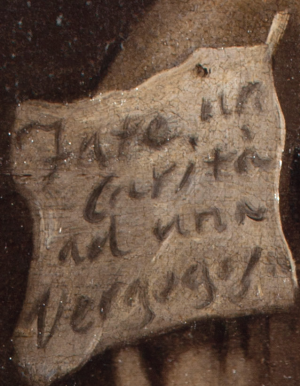 Fate, un
Carità
ad una
Vergogos